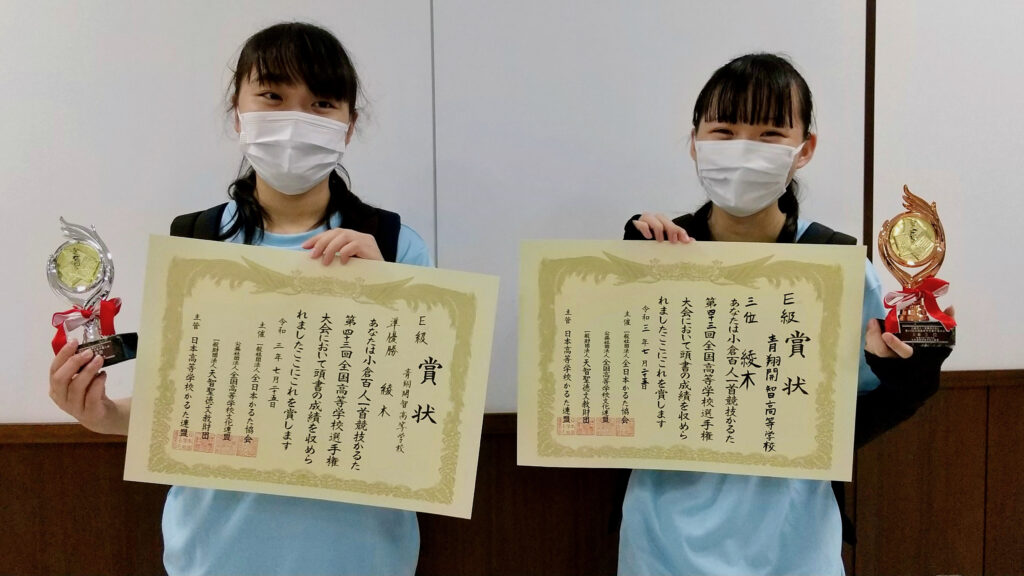 E級
賞状
準優勝
青翔開智高等学校
綾木
あなたは小倉百人一首競技かるた
第四十三回全国高等学校選手権
大会において頭書の成績を収めら
れましたここにこれを賞します
令和三年七月二十五日
主催 一般社団法人全日本かるた協会
公益社団法人全国高等学校文化連盟
一般財団法人天智聖徳文教財団
主管 日本高等学校かるた連盟
E級
賞状
三位
青翔開智高等学校
綾木
あなたは小倉百人一首競技かるた
第四十三回全国高等学校選手権
大会において頭書の成績を収めら
れましたここにこれを賞します
令和三年七月二十五日
主催 一般社団法人全日本かるた協会
公益社団法人全国高等学校文化連盟
一般財団法人天智聖徳文教財団
主管 日本高等学校かるた連盟